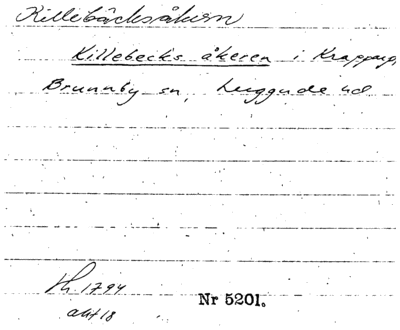 Killebäcksåkern
Killebecks åkeren i Krapperup,
Brunnby sn, Luggude hd
Lh. 1794
akt 18
Nr 5201.